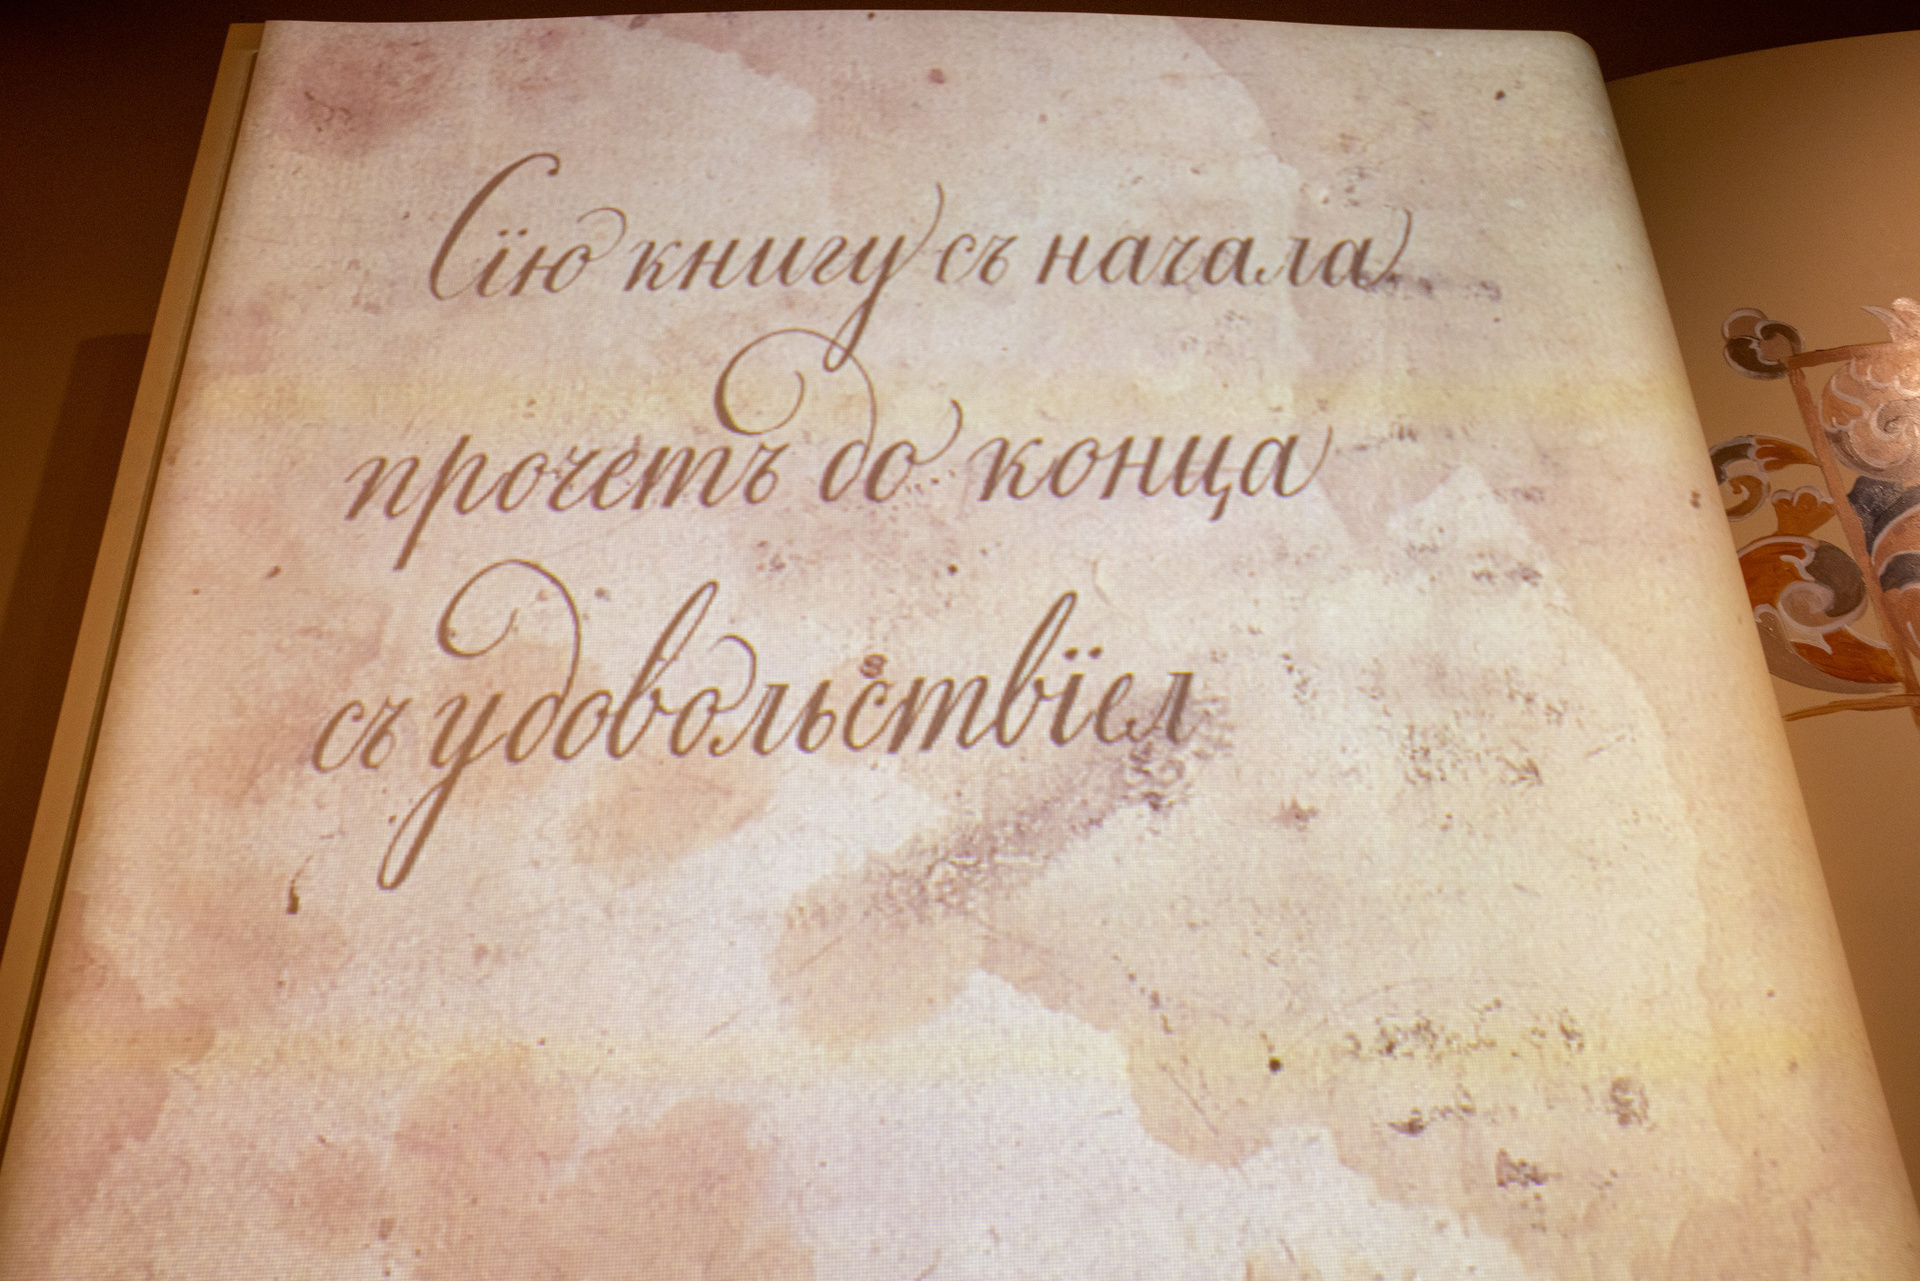 Сїю книгу съ начала
прочетъ до конца
съ удовольствїем